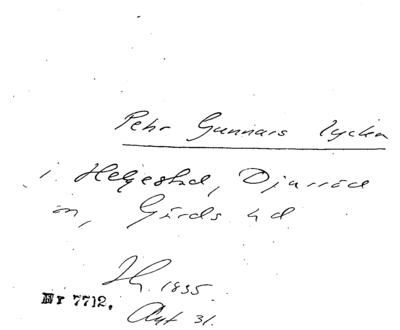 Pehr Gunnars lycka
i Helgestad, Djurröd
sn, Gärds hd.
Th. 1835
Nr 7712.
Avt 31.